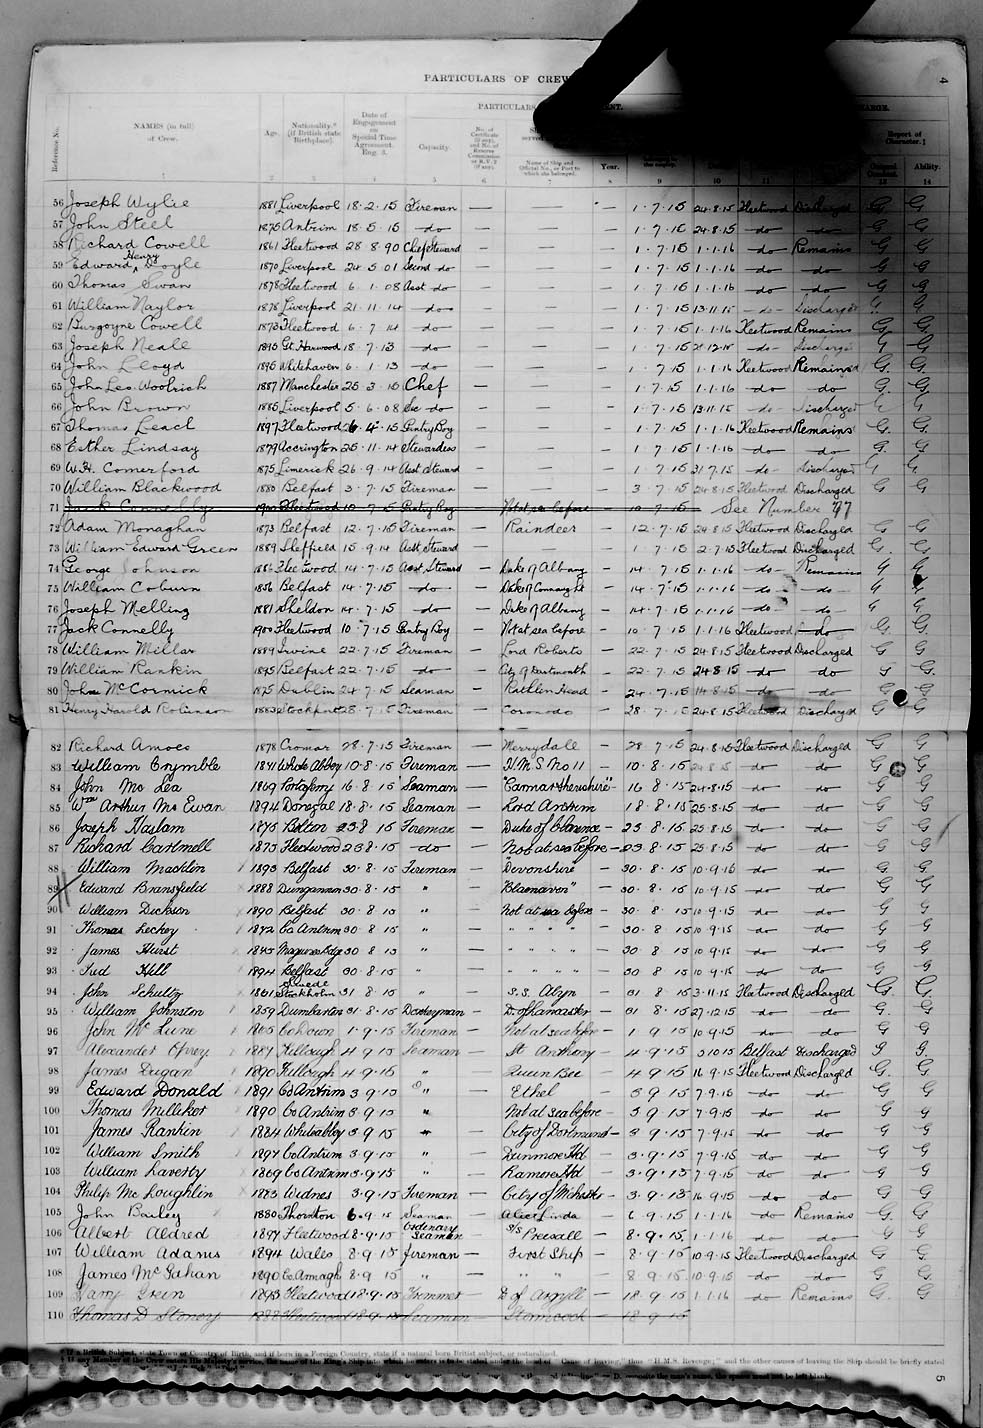 4
PARTICULARS OF CREW
PARTICULARS
Reference No. NAMES (in full) of Crew. Age. Nationality.* (if British state Birthplace). Date of Engagement on Special Time Agreement. Eng. 3. Capacity. No. of Certificate (if any), and No. of Reserve Commission or R.V. 2 (if any). Name of Ship and Official No., or Port to which she belonged. Year. Report of Character.† General Conduct. Ability.
1 2 3 4 5 6 7 8 9 10 11 13 14
56 Joseph Wylie 1881 Liverpool 18.2.15 Fireman — — — 1.7.15 24.8.15 Fleetwood Discharged G G
57 John Steel 1875 Antrim 18.5.15 -do- — — — 1.7.15 24.8.15 -do- -do- G G
58 Richard Cowell 1861 Fleetwood 28 8 90 Chef Steward — — — 1.7.15 1.1.16 -do- Remains G G
59 Edward Henry Doyle 1870 Liverpool 24 5 01 Second do — — — 1.7.15 1.1.16 -do- -do- G G
60 Thomas Swan 1878 Fleetwood 6.1.08 Asst do — — — 1.7.15 1.1.16 -do- -do- G G
61 William Naylor 1878 Liverpool 21.11.14 -do- — — — 1.7.15 13.11.15 -do- Discharged G G
62 Burgoyne Cowell 1873 Fleetwood 6.7.14 -do- — — — 1.7.15 1.1.16 Fleetwood Remains G G
63 Joseph Neale 1895 Gt. Harwood 18.7.13 -do- — — — 1.7.15 12.15 -do- Discharged G G
64 John Lloyd 1895 Whitehaven 6.1.13 -do- — — — 1.7.15 1.1.16 Fleetwood Remains G G
65 John Leo Woolrich 1887 Manchester 25.3.15 Chef — — — 1.7.15 1.1.16 -do- -do- G G
66 John Brown 1885 Liverpool 5.6.08 Sec do — — — 1.7.15 13.11.15 -do- Discharged G G
67 Thomas Leach 1897 Fleetwood 26.4.15 Pantry Boy — — — 1.7.15 1.1.16 Fleetwood Remains G G
68 Esther Lindsay 1879 Accrington 25.11.14 Stewardess — — — 1.7.15 1.1.16 -do- -do- G G
69 W.H. Comerford 1875 Limerick 26.9.14 Asst Steward — — — 1.7.15 31.7.15 -do- Discharged G G
70 William Blackwood 1880 Belfast 3.7.15 Fireman — — — 3.7.15 24.8.15 Fleetwood Discharged G G
71 Jack Connelly 1900 Fleetwood 10.7.15 Pantry Boy Not at sea before 10.7.15 See Number 77
72 Adam Monaghan 1873 Belfast 12.7.15 Fireman — Raindeer — 12.7.15 24.8.15 Fleetwood Discharged G G
73 William Edward Green 1889 Sheffield 15.9.14 Asst Steward — — — 1.7.15 2.7.15 Fleetwood Discharged G G
74 George Johnson 1886 Fleetwood 14.7.15 Asst Steward — Duke of Albany — 14.7.15 1.1.16 -do- Remains G G
75 William Coburn 1856 Belfast 14.7.15 -do- — Duke of Connaught — 14.7.15 1.1.16 -do- -do- G G
76 Joseph Melling 1881 Sheldon 14.7.15 -do- — Duke of Albany — 14.7.15 1.1.16 -do- -do- G G
77 Jack Connelly 1900 Fleetwood 10.7.15 Pantry Boy — Not at sea before — 10.7.15 1.1.16 Fleetwood -do- G G
78 William Millar 1889 Irvine 22.7.15 Fireman — Lord Roberts — 22.7.15 24.8.15 Fleetwood Discharged G G
79 William Rankin 1895 Belfast 22.7.15 -do- — City of Dortmouth — 22.7.15 24.8.15 -do- -do- G G
80 John McCormick 1875 Dublin 24.7.15 Seaman — Rathlin Head — 24.7.15 14.8.15 -do- -do- G G
81 Henry Harold Robinson 1883 Stockport 28.7.15 Fireman — Coronado — 28.7.15 24.8.15 Fleetwood Discharged G G
82 Richard Amoes 1878 Cromar 28.7.15 Fireman — Merrydale — 28.7.15 24.8.15 Fleetwood Discharged G G
83 William Crymble 1841 White Abbey 10.8.15 Fireman — H.M.S No 11 — 10.8.15 24.8.15 -do- -do- G G
84 John Mc Lea 1869 Portaferry 16.8.15 Seaman — "Carmarthenshire" — 16.8.15 24.8.15 -do- -do- G G
85 Wm Arthur Mc Ewan 1894 Donegal 18.8.15 Seaman — Lord Antrim — 18.8.15 25.8.15 -do- -do- G G
86 Joseph Haslam 1875 Bolton 23 8 15 Fireman — Duke of Clarence — 23.8.15 25.8.15 -do- -do- G G
87 Richard Cartmell 1873 Fleetwood 23 8 15 -do- — Not at sea before — 23.8.15 25.8.15 -do- -do- G G
88 William Macklin 1893 Belfast 30.8.15 Fireman — "Devonshire" — 30.8.15 10.9.15 -do- -do- G G
89 Edward Bransfield 1888 Dungannon 30.8.15 " — "Blaenavon" — 30.8.15 10.9.15 -do- -do- G G
90 William Dickson 1890 Belfast 30.8.15 " — Not at sea before — 30.8.15 10.9.15 -do- -do- G G
91 Thomas Leckey 1872 Co Antrim 30 8 15 " — " " " " — 30.8.15 10.9.15 -do- -do- G G
92 James Hurst 1845 30 8 15 " — " " " " — 30.8.15 10.9.15 -do- -do- G G
93 Fred Hill 1894 Belfast 30.8.15 " — " " " " — 30 8 15 10.9.15 -do- -do- G G
94 John Schultz 1861 Swede Stockholm 31 8 15 " — S.S. Alyn — 31 8 15 3.11.15 Fleetwood Discharged G G
95 William Johnston 1859 Dumbarton 31.8.15 Donkeyman — D. of Lancaster — 31 8 15 27.12.15 -do- -do- G G
96 John McLune 1885 Co Down 1.9.15 Fireman — Not at sea before — 1 9 15 10.9.15 -do- -do- G G
97 Alexander Oprey 1887 Killough 4 9 15 Seaman — St Anthony — 4.9.15 5 10 15 Belfast Discharged G G
98 James Dugan 1890 Killough 4 9 15 " — Queen Bee — 4 9 15 16.9.15 Fleetwood Discharged G G
99 Edward Donald 1891 Co Antrim 3 9 15 " — Ethel — 3 9 15 7.9.15 -do- -do- G G
100 Thomas Milleker 1890 Co Antrim 3 9 15 " — Not at sea before — 3 9 15 7.9.15 -do- -do- G G
101 James Rankin 1884 Whiteabbey 3 9 15 " — City of Dortmund — 3 9 15 7.9.15 -do- -do- G G
102 William Smith 1897 Co Antrim 3.9.15 " — Dunmore Hd — 3.9.15 7.9.15 -do- -do- G G
103 William Laverty 1869 Co Antrim 3.9.15 " — Ramore Hd — 3.9.15 7.9.15 -do- -do- G G
104 Philip McLoughlin 1873 Widnes 3.9.15 Fireman — City of — 3.9.15 16.9.15 -do- -do- G G
105 John Bailey 1880 Thornton 6.9.15 Seaman — Alice Linda — 6.9.15 1.1.16 -do- Remains G G
106 Albert Aldred 1897 Fleetwood 8.9.15 Ordinary Seaman — S/S Preesall — 8.9.15 1.1.16 -do- -do- G G
107 William Adams 1894 Wales 8.9.15 Fireman — First Ship — 8.9.15 10.9.15 Fleetwood Discharged G G
108 James McGahan 1890 Co. Armagh 8.9.15 " — " " — 8.9.15 10.9.15 -do- -do- G G
109 Harry Green 1893 Fleetwood 18.9.15 Trimmer — D of Argyll — 18.9.15 1.1.16 -do- Remains G G
110 Thomas D Stoney 1888 Fleetwood 18.9.15 Seaman — Stormcock — 18.9.15
* If a British Subject, state Town or Country of Birth, and if born in a Foreign Country, state if a natural born British subject, or naturalized.
† If any Member of the Crew enters His Majesty's service, the name of the King's Ship into which he enters is to be stated under the head of "Cause of leaving," thus "H.M.S. Revenge;" and the other causes of leaving the Ship should be briefly stated
5